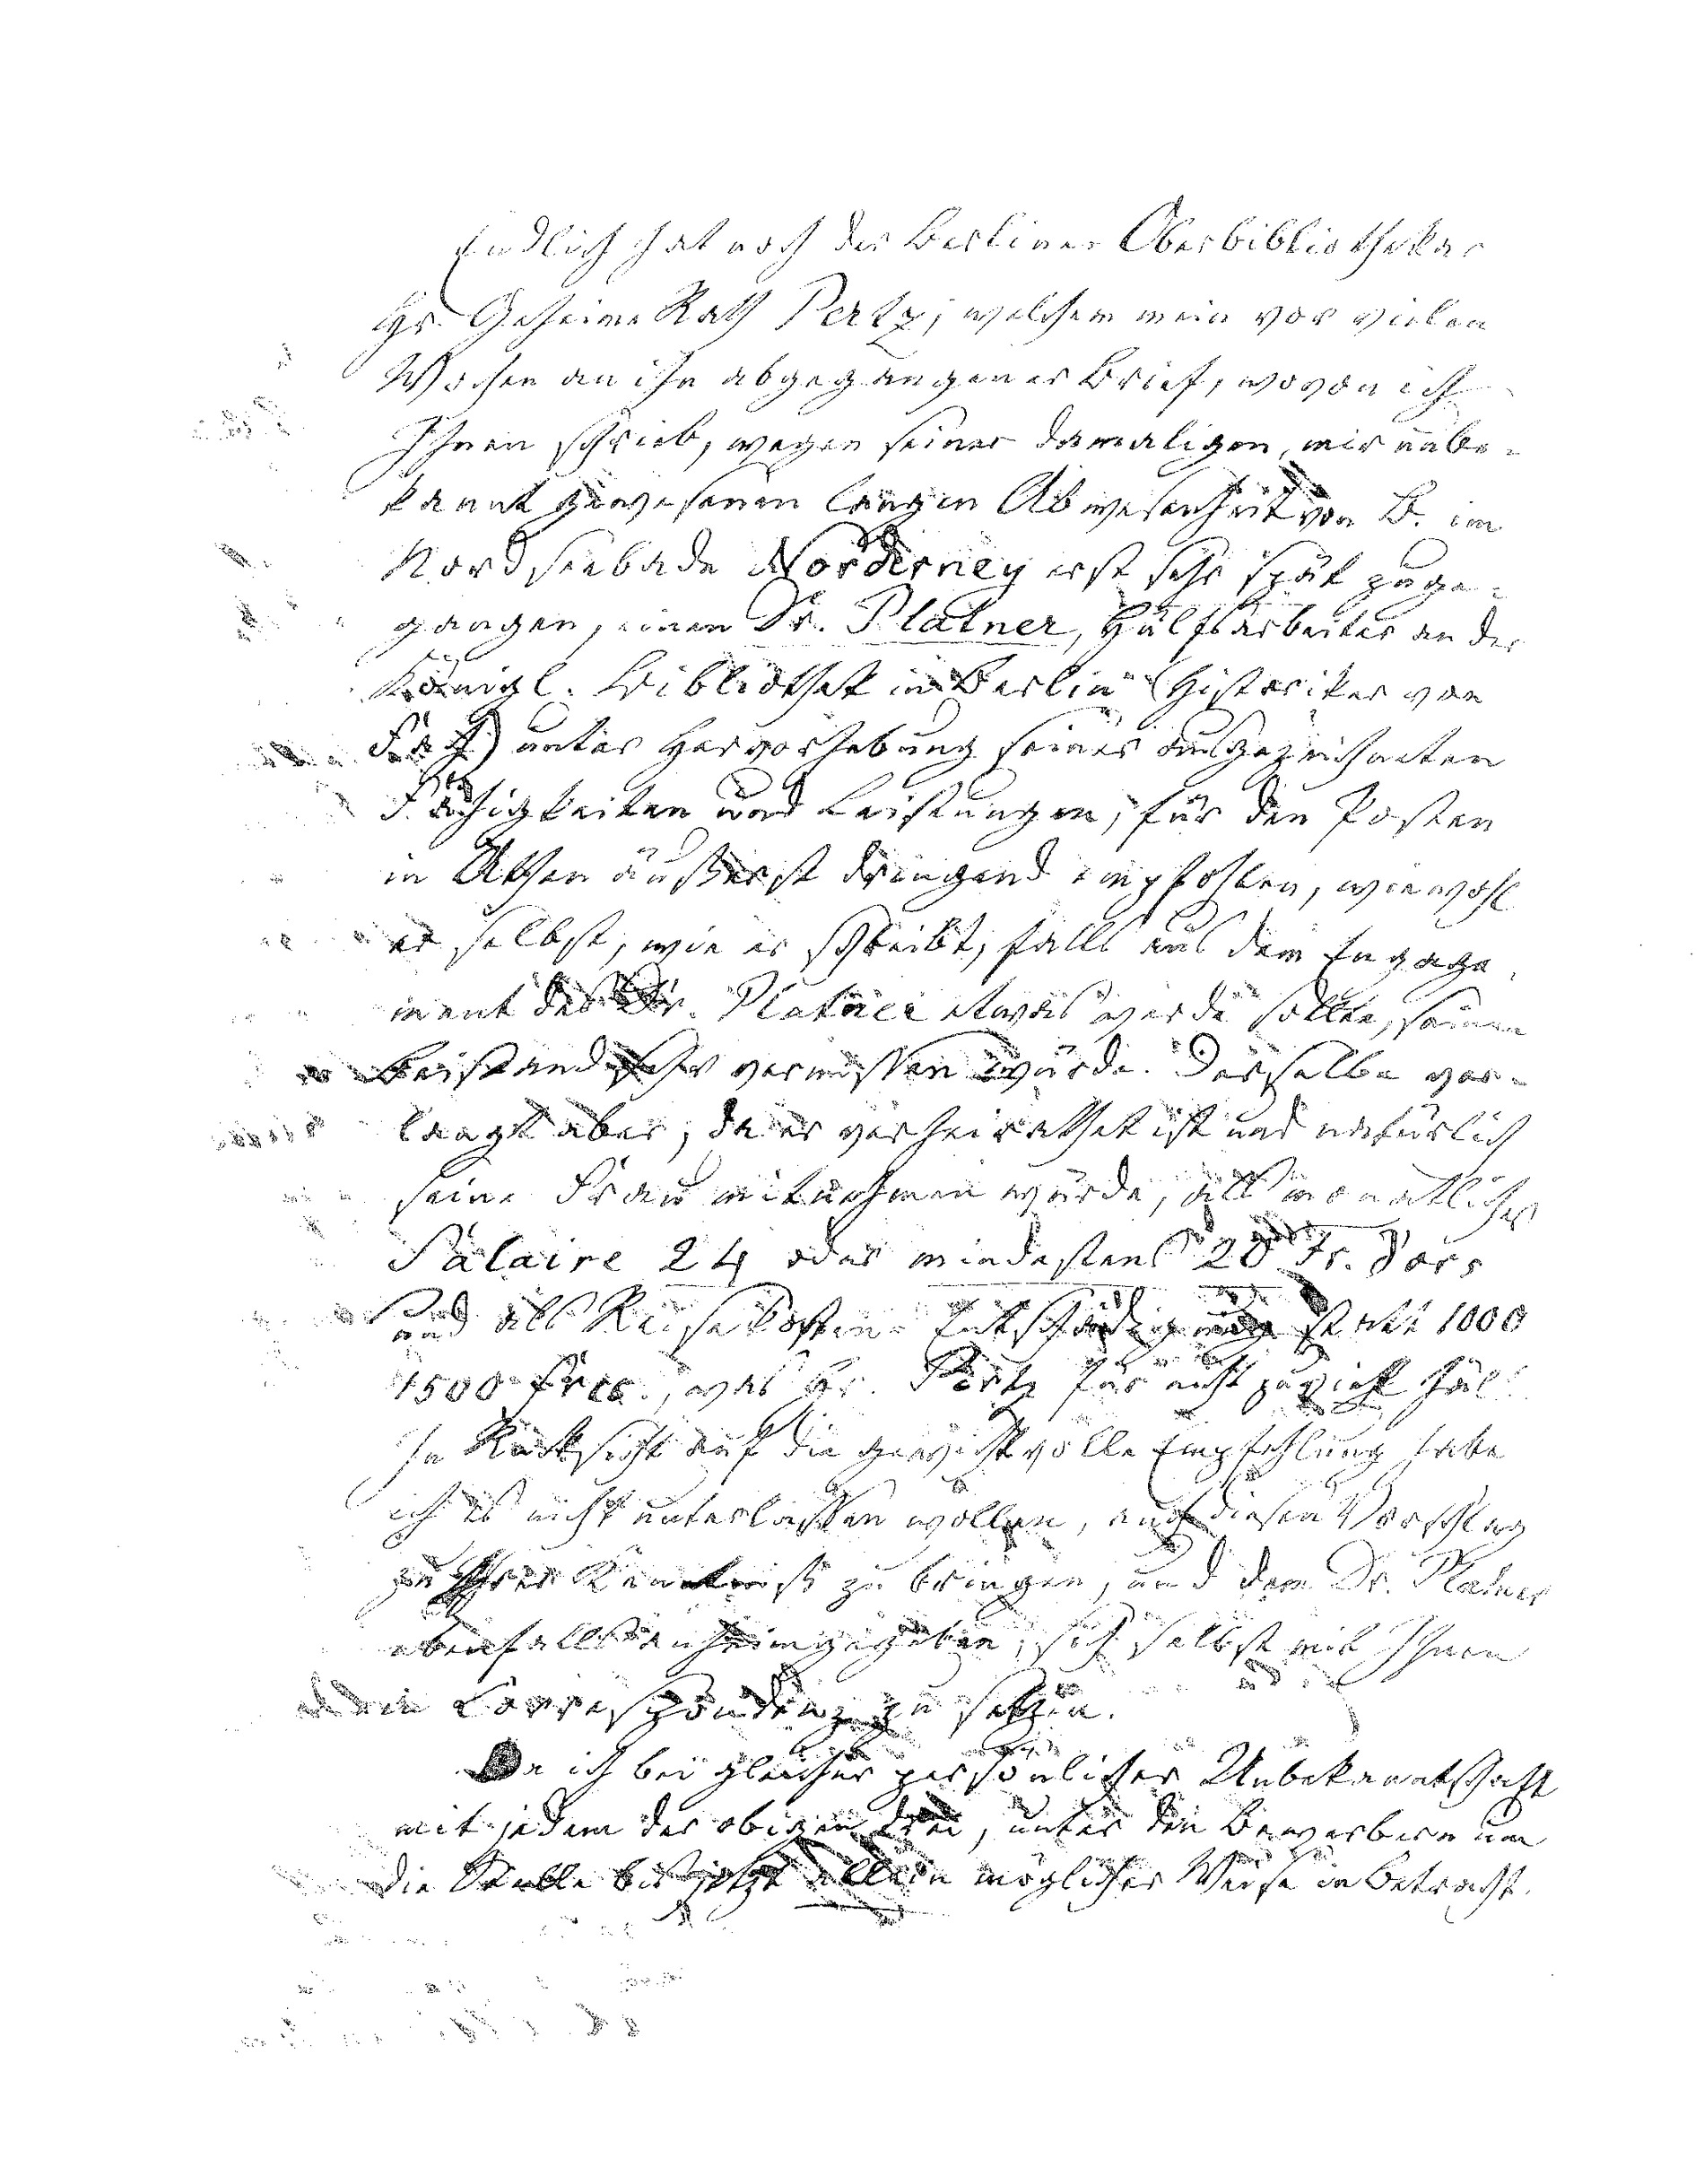 Endlich hat noch der Berliner Oberbibliothekar
Hr. Geheime Rath Pertz, welchem mein vor vielen
Wochen an ihn abgegangener Brief, wovon ich
Ihnen schrieb, wegen seiner damaligen, mir unbe-
kannt gewesenen langen Abwesenheit von B. im
Nordseebade Norderney erst sehr spät zuge-
gangen, einen Dr. Platner, Hülfsarbeiter an der
Königl. Bibliothek in Berlin (Historiker von
Fach) unter Hervorhebung seiner ausgezeichneten
Fähigkeiten und Leistungen, für den Posten
in Athen äußerst dringend empfohlen, wiewohl
er selbst, wie er schreibt, falls aus dem Engage-
ment des Dr. Platner etwas werde sollte, seinen
Beistand sehr vermissen würde. Derselbe ver-
langt aber, da er verheirathet ist und natürlich
seine Frau mitnehmen würde, als monatliches
Salaire 24 oder mindestens 20 Fr. d'ors
und als Reisekosten-Entschädigung statt 1000
1500 Frcs., was Hr. Pertz für nicht zu viel hält.
In Rücksicht auf die gewichtvolle Empfehlung habe
ich es nicht unterlassen wollen, auch diesen Vorschlag
zu Ihrer Kenntniß zu bringen, und dem Dr. Platner
ebenfalls anheimgegeben, sich selbst mit Ihnen
in Correspondenz zu setzen.
Da ich bei gleicher persönlicher Unbekanntschaft
mit jedem der obigen drei, unter den Bewerbern um
die Stelle bis jetzt allein möglicher Weise in Betracht